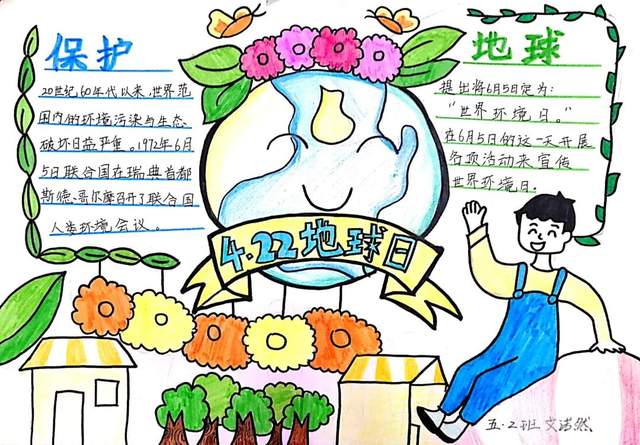 保护
20世纪60年代以来，世界范
围内的环境污染与生态
破坏日益严重。1972年6月
5日联合国在瑞典首都
斯德哥尔摩召开了联合国
人类环境会议。
地球
提出将6月5日定为：
“世界环境日。”
在6月5日的这一天开展
各项活动来宣传
世界环境日.
4.22地球日
五.2班